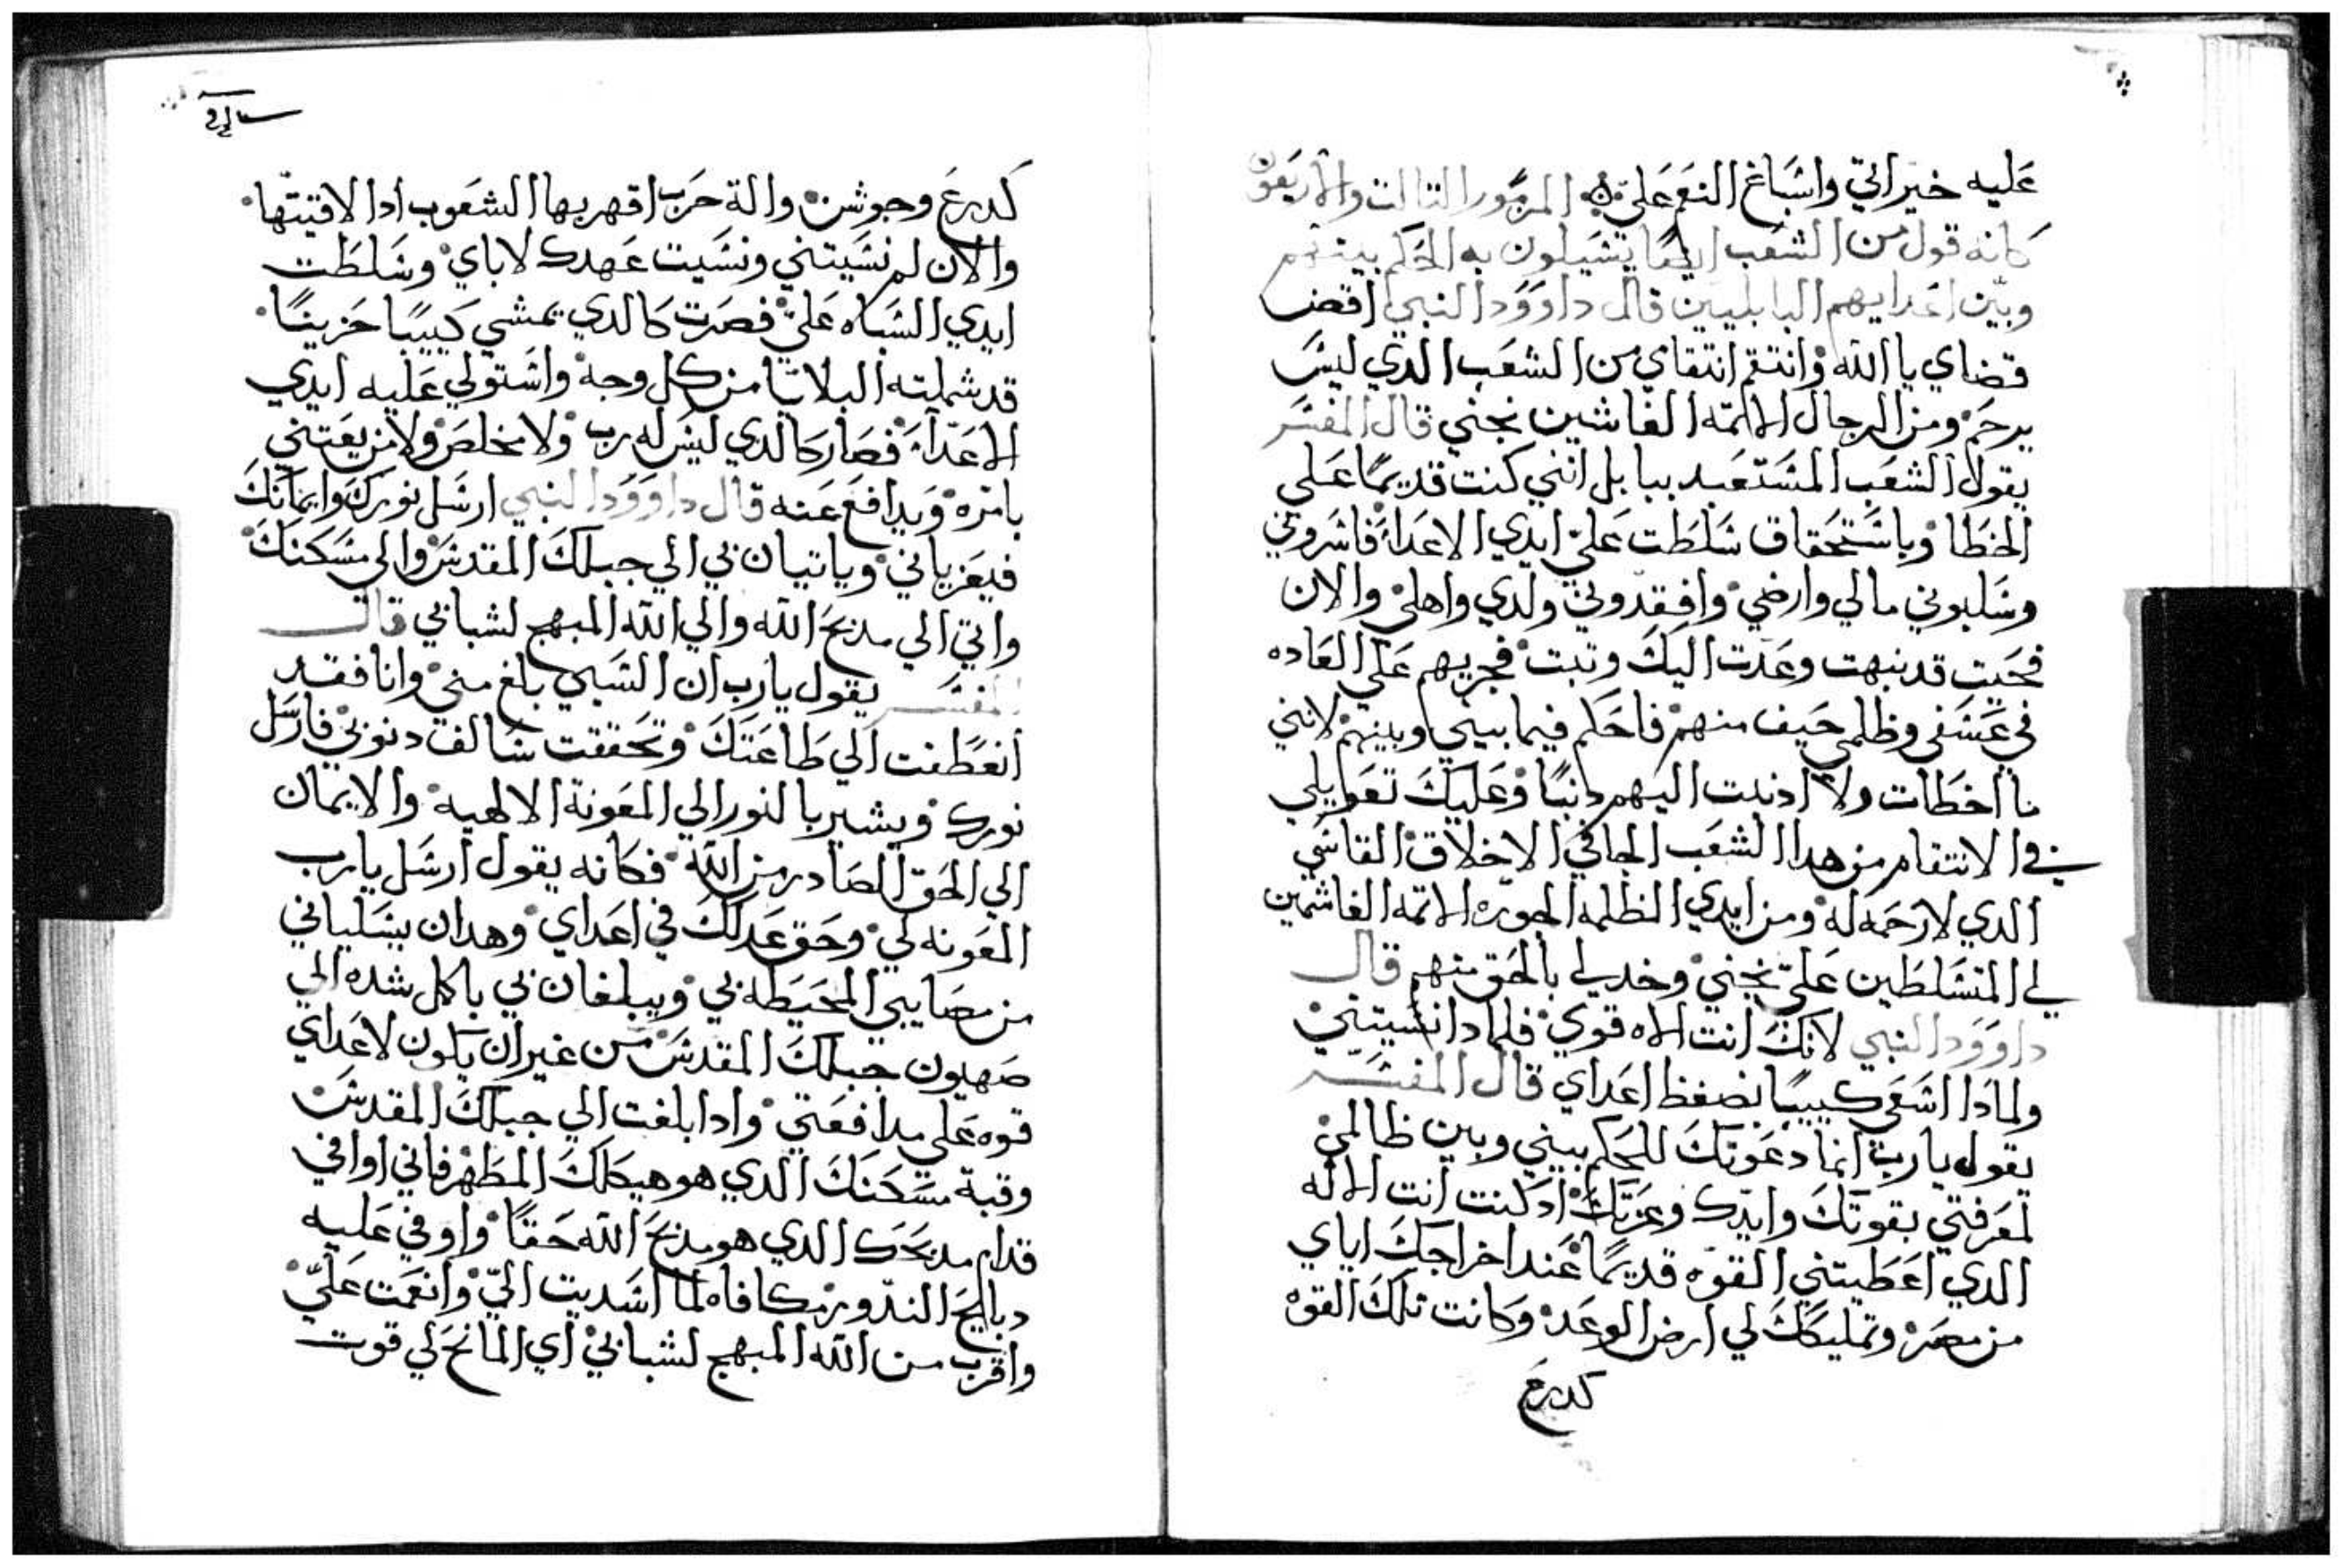 عليه خيراتي واسباغ النعم علي ۞ المزمور التالت والاربعون
كانه قول من الشعب ايضا يتسيلون به الحكم بينهم
وبين اعدايهم البابليين قال داوود النبي اقض
قضاي يا الله وانتقم انتقاي من الشعب الدي ليس
يرحم ومن الرجال الاتمه الغاشين نجني قال المفسر
يقول الشعب المستعبد ببابل انني كنت قديما على
الخطا وباستحقاق سلطت علي ايدي الاعدا فاسروني
وسلبوني مالي وارضي وافقدوني ولدي واهلي والان
فحيت قد نبهت وعدت اليك وتبت فجريهم على العاده
في عسفي وظلمي حيف منهم فاحكم فيما بيني وبينهم لانني
ما اخطات ولا ادنبت اليهم دنبا وعليك تعويلي
في الانتقام من هدا الشعب الجافي الاخلاق القاسي
الدي لا رحمه له ومن ايدي الظلمه الجوره الاتمه الغاشمين
لي المتسلطين علي نجني وخد لي بالحق منهم قال
داوود النبي لانك انت الاه قوي فلمادا نسيتني
ولمادا اسعى كييبا بضغط اعداي قال المفسر
يقول يا رب انما دعوتك للحكم بيني وبين ظالمي
لمعرفتي بقوتك وايدك وعزتك اد كنت انت الاله
الدي اعطيتني القوه قديما عند اخراجك اياي
من مصر وتمليكك لي ارض الوعد وكانت تلك القوه
كدرع
كدرع وجوشن والة حرب اقهر بها الشعوب ادا لاقيتها
والان لم نسيتني ونسيت عهدك لاباي وسلطت
ايدي السباه علي فصرت كالدي يمشي كييبا حزينا
قد شملته البلايا من كل وجه واستولي عليه ايدي
الاعدا فصار كالدي ليس له رب ولا مخلص ولا من يعتني
بامره ويدافع عنه قال داوود النبي ارسل نورك وايمانك
فيعزياني وياتيان بي الي جبلك المقدس والي مسكنك
واتي الي مدبح الله والي الله المبهج لشبابي قال
المفسر يقول يا رب ان السبي بلغ مني وانا فقد
انعطفت الي طاعتك وتحققت سالف دنوبي فارسل
نورك ويشير بالنور الي المعونة الالهيه والايمان
الي الحق الصادر من الله فكانه يقول ارسل يا رب
المعونه لي وحق عدلك في اعداي وهدان يسلياني
من مصايبي المحيطه بي ويبلغان بي باكل شده الي
صهيون جبلك المقدس من غير ان يكون لاعداي
قوه على مدافعتي وادا بلغت الي جبلك المقدس
وقبة مسكنك الدي هو هيكلك المطهر فاني اوافي
قدام مدبحك الدي هو مدبح الله حقا واوفي عليه
دبايح الندور مكافاه لما اسديت الي وانعمت علي
واقرب من الله المبهج لشبابي اي المانح لي قوت